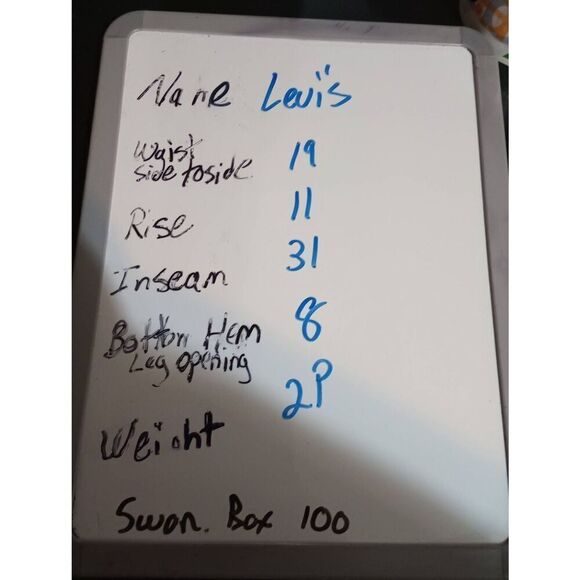 Name Levi's
Waist 19
side to side
Rise 11
Inseam 31
Bottom Hem 8
Leg opening
Weight 2P
Swan. Box 100